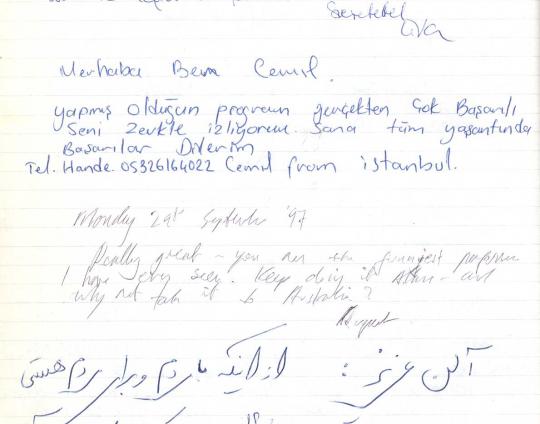 Szeretettel
Merhaba Ben Cemil.
yapmış Olduğun program gerçekten Çok Başarılı
Seni Zevkle izliyorum Sana tüm yaşantında
Basarılar Dilerim
Tel. Hande. 05326164022 Cemil from istanbul.
Monday 29th September '97
Really great - you are the funniest performer
I have ever seen. Keep doing it - and
why not take it to Australia?
آلن عزیز: از اینکه با مردم و برای مردم هستی